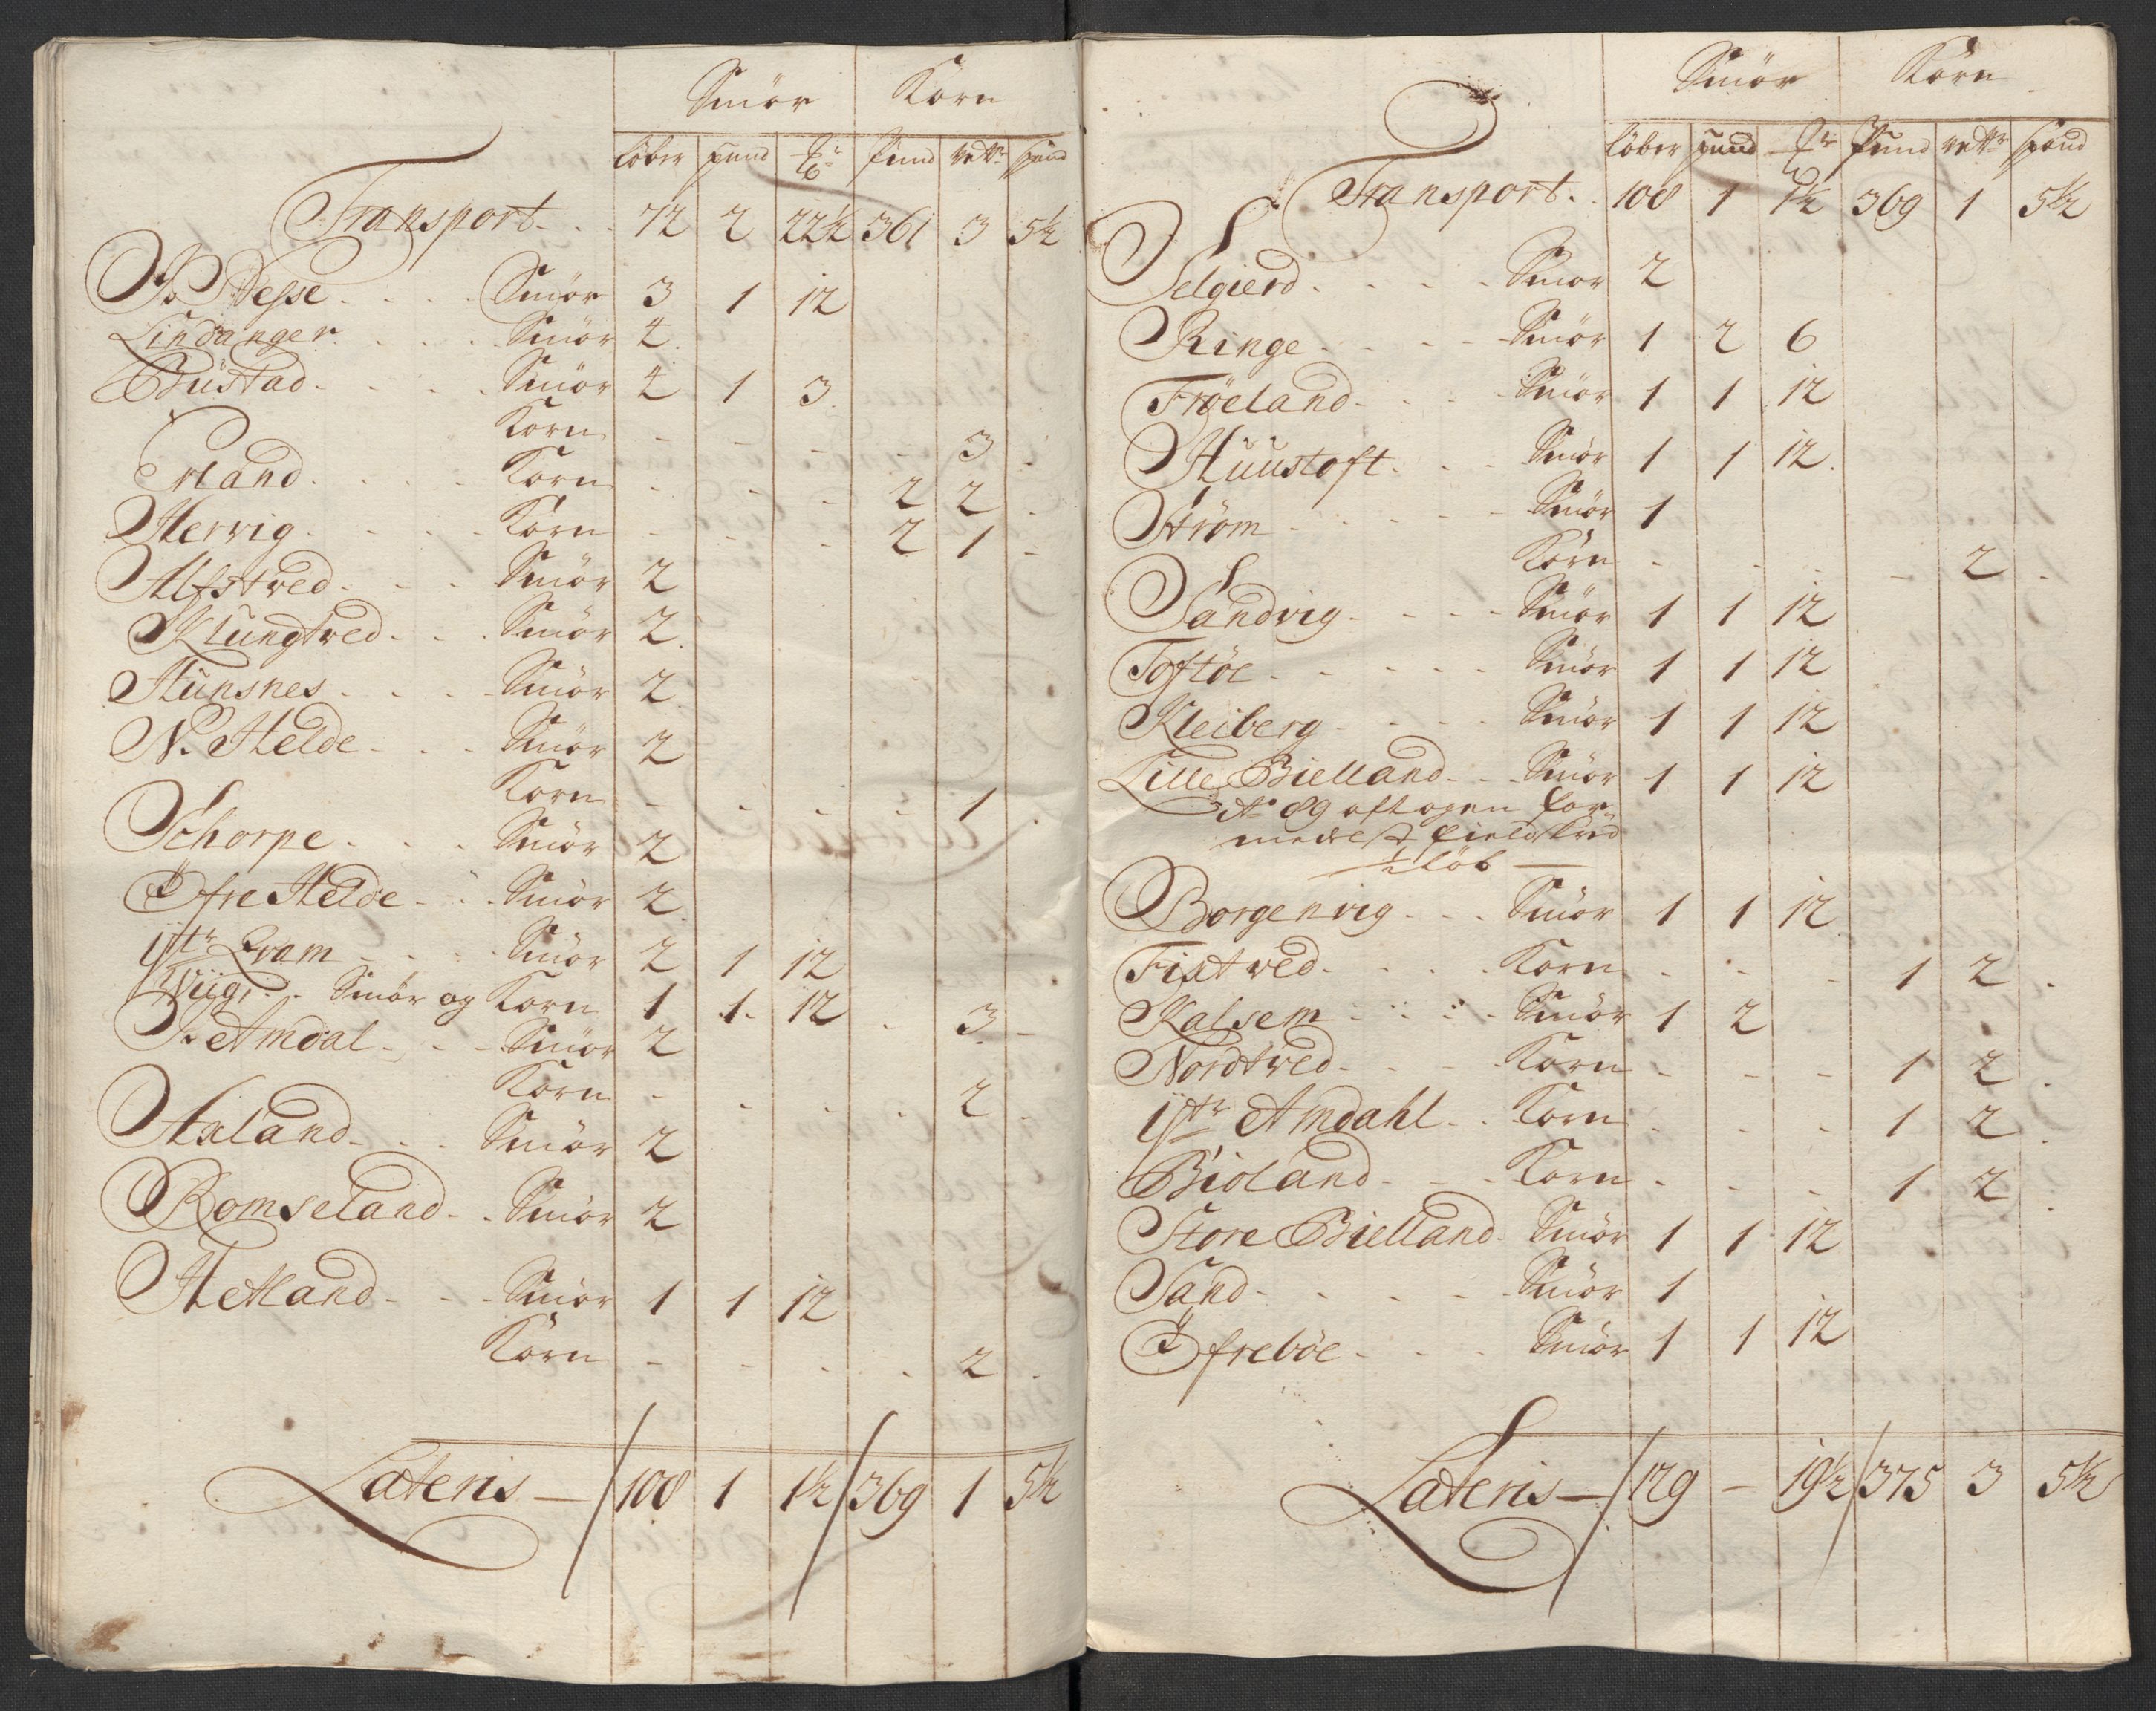 Smör Korn
löber pund Korn pund vett: spand
Transport. . . 72 2 22½ 361 3 5½
Smör 3 1 12
Lindanger. . . . Smör 4.
Büstad. . . . Smör 4 1 3.
Korn - - - - 3 -
Erland. . . . . Korn - - - 2 2 -
Hervig. . . . Korn - - - 2 1 -
Alfstved. . . . Smör 2
Klungtved. . . Smör 2.
Hünsnes. . . . Smör 2
N. Helde. . . Smör 2
Korn - - - - 1 -
Schorpe. . . . Smör 2
Öfre Helde. . . Smör 2.
ÿtr Qvam. . . . Smör 2 1 12
Wiig, . . Smör og Korn 1 1 12 - 3 -
I. Amdal. . . . Smör 2
Korn - - - - 2 -
Axland. . . Smör 2
Romseland. . Smör 2
Hetland. . . Smör 1 1 12
Korn - - - - 2 -
Lateris — / 108 1 1½ / 369 1 5½
Smör Korn
löber pund pund vettr spand
Transport. . 108 1 1½ 369 1 5½
Selgierd. . . . . Smör 2
Ringe. . . . . Smör 1 2 6
Fröeland. . . . Smör 1 1 12
Huustoft. . . . Smör 1 1 12.
Ström. . . . . Smör 1
Korn - - - - 2 -
Sandvig. . . . Smör 1 1 12
Toftöe. . . . . Smör 1 1 12
Kleiberg. . . . Smör 1 1 12
Lille Bielland. . . Smör 1 1 12
Ao 89 aftagen for-
medelst fieldskred
½ löb —
Borgenvig. . . Smör 1 1 12
Fistved. . . . Korn - - - 1 2 -
Kalsem. . . . Smör 1 2
Nordtved. . . . Korn - - - 1 2 -
ÿtr Amdahl. . Korn - - - 1 2 -
Bioland. . . . Korn - - - 1 2 -
Store Bielland. Smör 1 1 12
Sand. . . . . Smör 1
Öfreböe. . . . Smör 1 1 12
Lateris — / 129 - 19½ / 375 3 5½